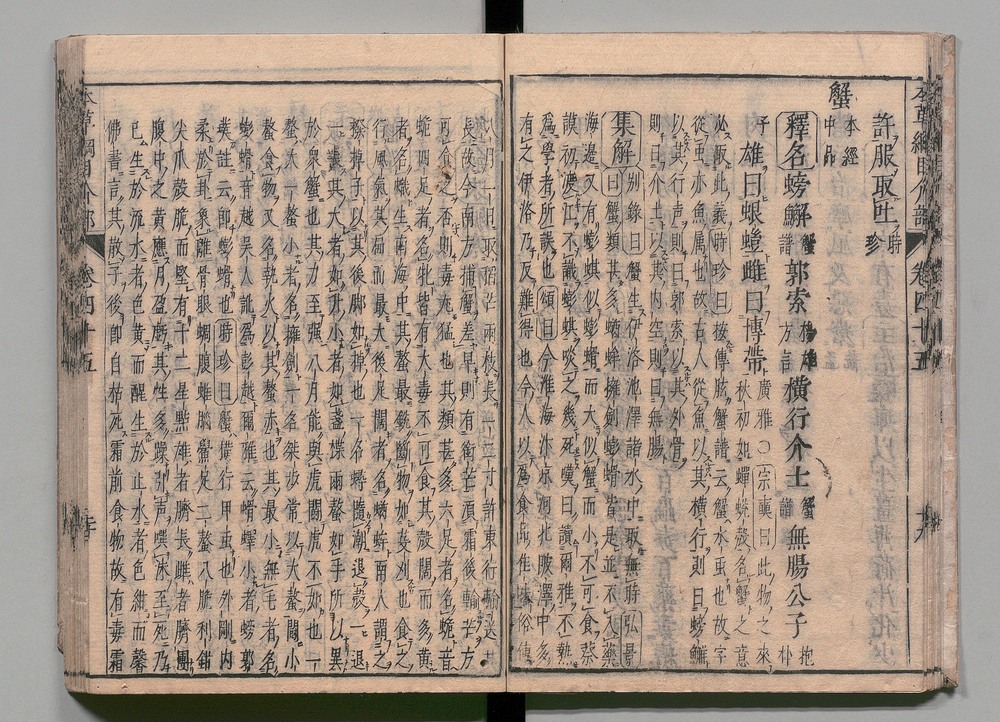 本草綱目介部 卷四十五 十九
許服取吐 時珍
蟹 本經中品
釋名 螃蠏 蟹譜 郭索 揚雄方言 横行介士 蟹譜 無腸公子 抱朴
子 雄曰蜋螘雌曰博帶 廣雅 ○宗奭曰此物之來
秋初如蟬蛻殼名蟹之意
必取此義 時珍曰 按傅肱蟹譜云蟹水虫也故字
從虫亦魚屬也故古人從魚以其横行則曰螃蠏
以其行声則曰郭索以其外骨
則曰介士以其内空則曰無腸
集解 別錄曰蟹生伊洛池澤諸水中取無時 弘景
曰蟹類甚多蝤蛑擁劍蟛螖皆是並不入藥
海邊又有蟛蜞似蟛螖而大似蟹而小不可食蔡
謨初渡江不識蟛蜞啖之幾死嘆曰讀爾雅不熟
爲學者所誤也 頌曰 今淮海汴京河北陂澤中多
有之伊洛乃反難得也今人以爲食品佳味俗傳
八月一日取稻芒兩枝長一二寸許東行輸送其
長故今南方捕蟹差早則有銜芒須霜後輸芒方
可食之否則毒尤猛也其類甚多六足者名蛫音
跪四足者名北皆有大毒不可食其殼闊而多黄
者名蠘生南海中其螯最銳斷物如芟刈也食之
行風氣其扁而最大後足闊者名蝤蛑南人謂之
撥棹子以其後脚如棹也一名蟳隨潮退殼一退
一長其大者如升小者如盞楪兩螯如手所以異
於衆蟹也其力至强八月能與虎鬭虎不如也一
螯大一螯小者名擁劍一名桀步常以大螯鬭小
螯食物又名執火以其螯赤也其最小無毛者名
蟛螖音越吳人訛爲彭越爾雅云螖蠌小者蟧郭
璞註云即蟛螖也 時珍曰 蟹横行甲虫也外剛内
柔於卦象離骨眼蜩腹䖬腦鱟足二螯八跪利鉗
尖爪殼脆而堅有十二星點雄者臍長雌者臍團
腹中之黄應月盈虧其性多躁引声噀沫至死乃
已生於流水者色黄而腥生於止水者色紺而馨
佛書言其散子後即自枯死霜前食物故有毒霜
本草綱目介部 卷四十五